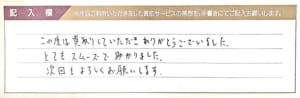 記入欄 今回ご利用いただきました貴社サービスの感想を、手書きにてご記入お願いします。
この度は買取りしていただきありがとうございました。
とてもスムーズで助かりました。
次回もよろしくお願いします。